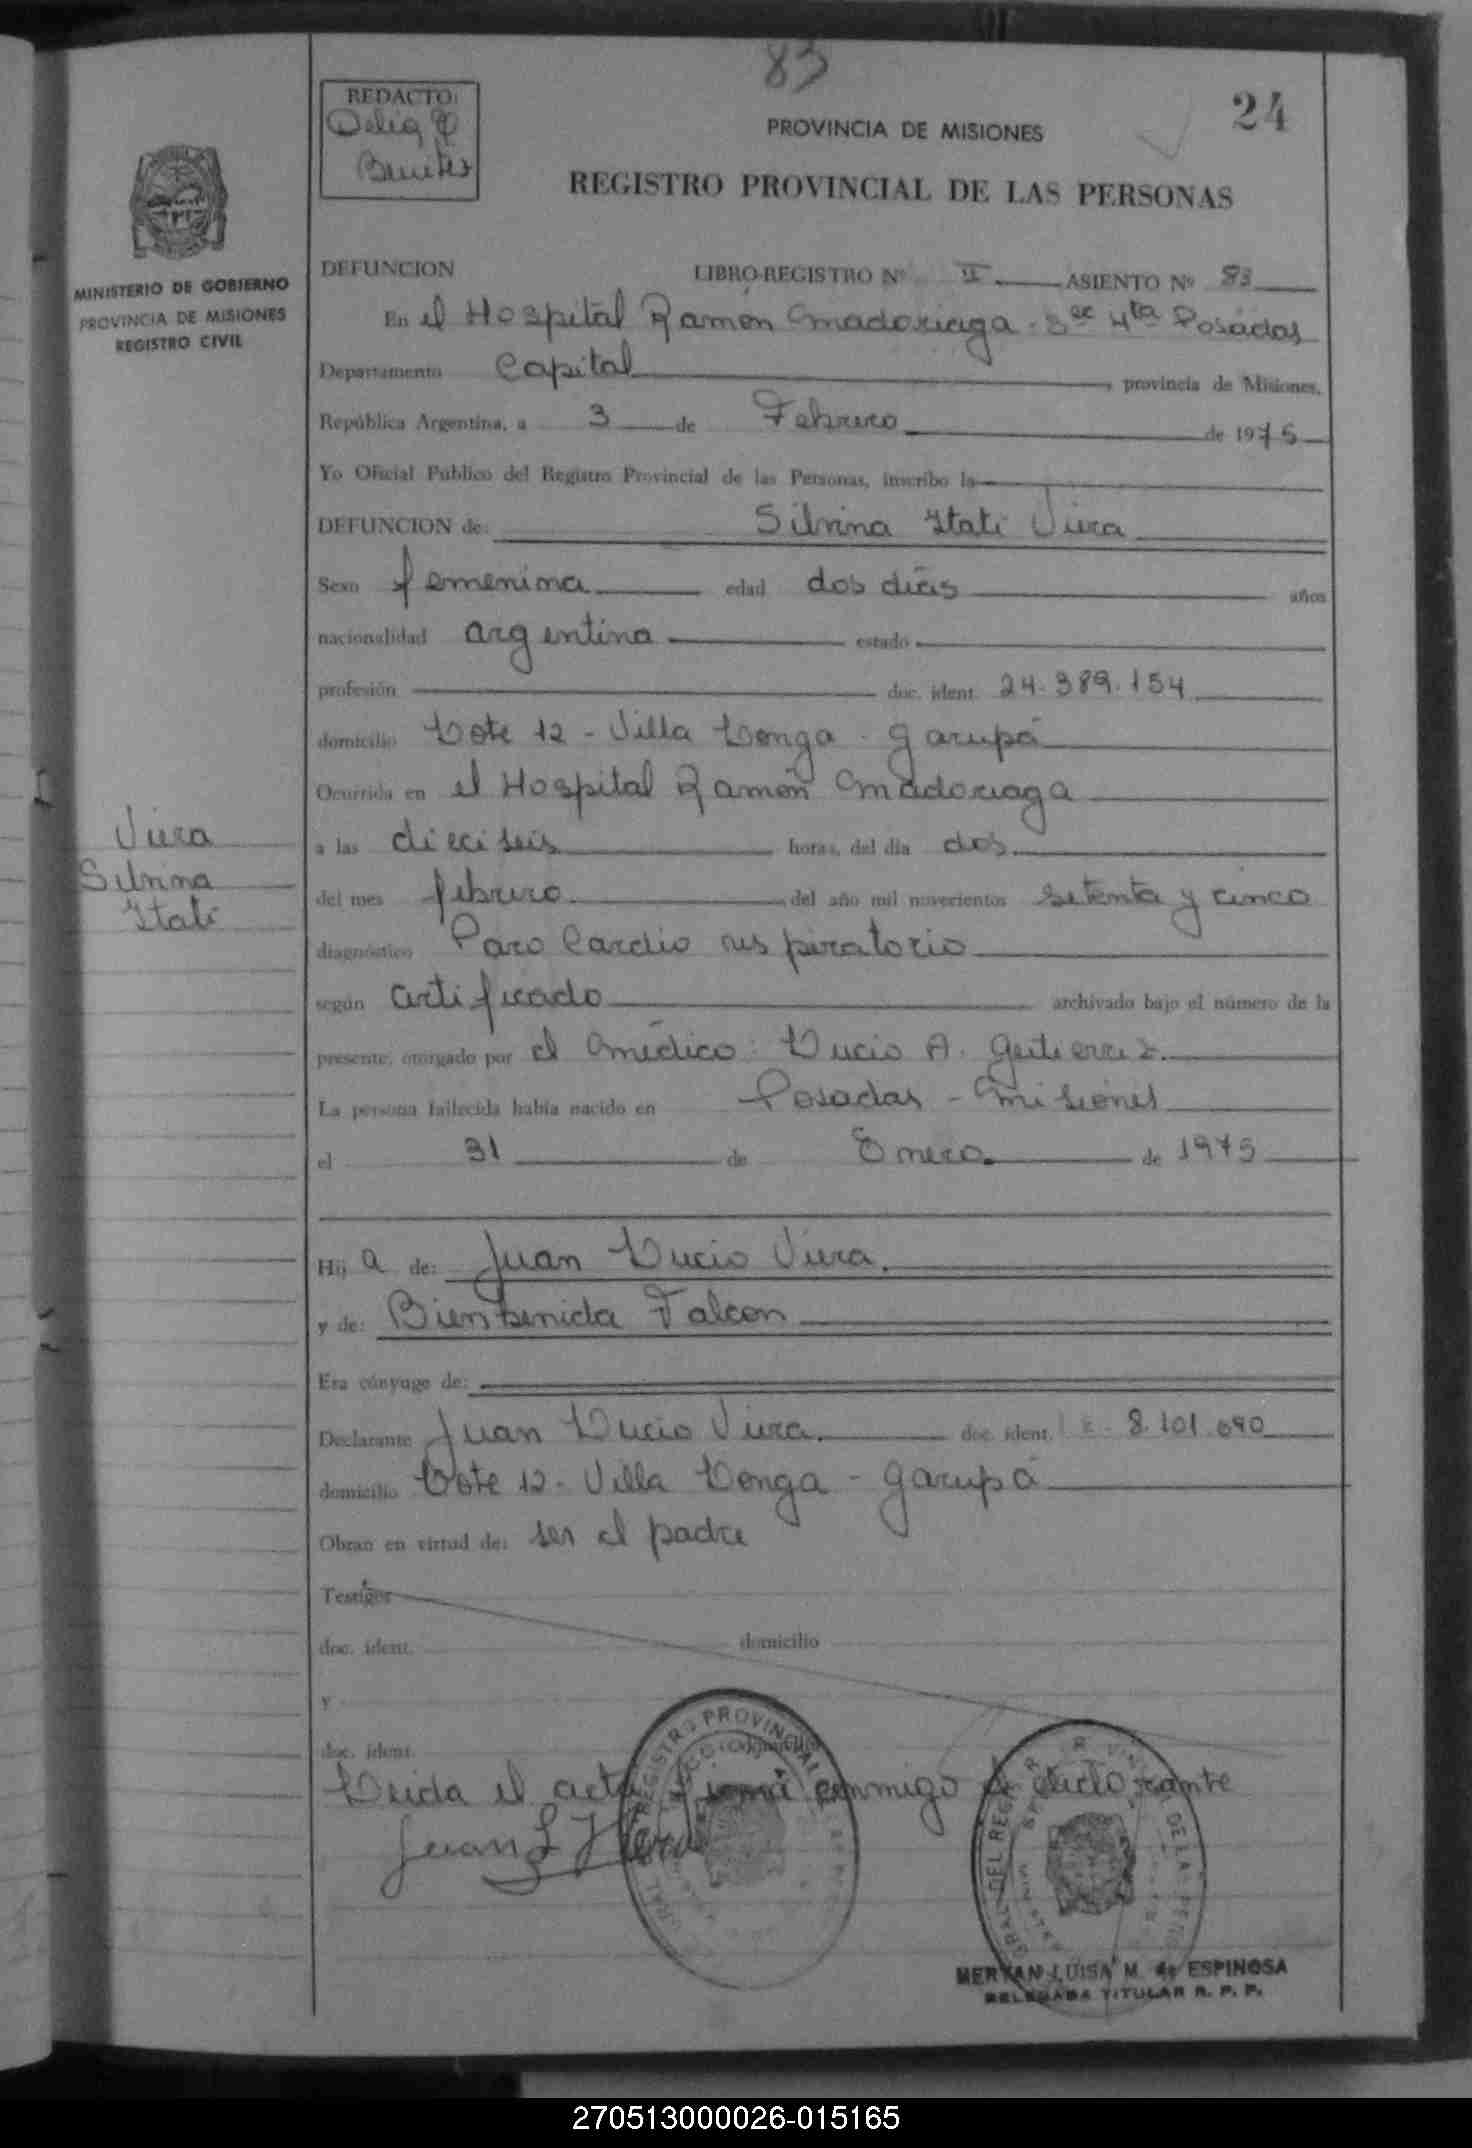 83
24
REDACTO:
Delia
Benitez
PROVINCIA DE MISIONES
REGISTRO PROVINCIAL DE LAS PERSONAS
MINISTERIO DE GOBIERNO
PROVINCIA DE MISIONES
REGISTRO CIVIL
DEFUNCION LIBRO-REGISTRO Nº II ASIENTO Nº 83
En el Hospital Ramón Madoriaga - Sec 4ta Posadas
Departamento Capital, provincia de Misiones,
República Argentina, a 3 de Febrero de 1975
Yo Oficial Público del Registro Provincial de las Personas, inscribo la
DEFUNCION de: Silvina Itatí Viera
Sexo femenina edad dos días años
nacionalidad argentina estado
profesión doc. ident. 24.389.154
domicilio Lote 12 - Villa Longa - Garupá
Ocurrida en el Hospital Ramón Madoriaga
a las dieciseis horas, del día dos
del mes febrero del año mil novecientos setenta y cinco
diagnóstico Paro Cardio respiratorio
según certificado archivado bajo el número de la
presente, otorgado por el médico: Lucio A. Gutierrez.
La persona fallecida había nacido en Posadas - Misiones
el 31 de Enero de 1975
Viera
Silvina
Itatí
Hij a de: Juan Lucio Viera.
y de: Bienvenida Falcon
Era cónyuge de:
Declarante Juan Lucio Viera. doc. ident. 8.101.690
domicilio Lote 12 - Villa Longa - Garupá
Obran en virtud de: ser el padre
Testigos
doc. ident. domicilio
y
doc. ident. domicilio
Leida el acta firma conmigo el declarante
Juan L Viera
REGISTRO PROVINCIAL
MERYAN LUISA M. de ESPINOSA
DELEGADA TITULAR R. P. P.
270513000026-015165